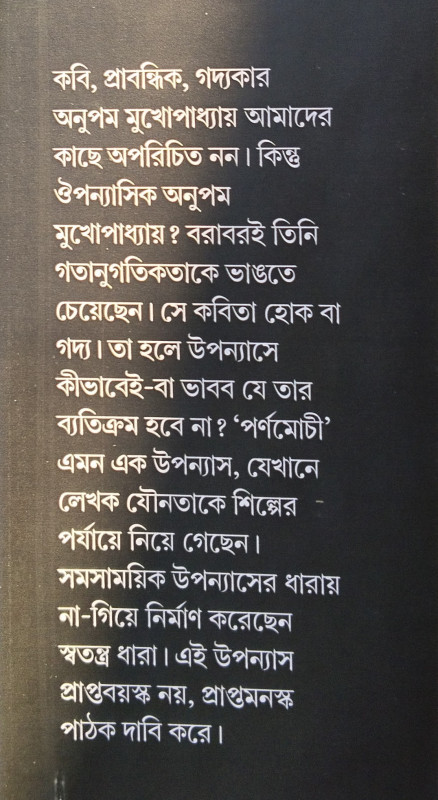 কবি, প্রাবন্ধিক, গদ্যকার
অনুপম মুখোপাধ্যায় আমাদের
কাছে অপরিচিত নন। কিন্তু
ঔপন্যাসিক অনুপম
মুখোপাধ্যায়? বরাবরই তিনি
গতানুগতিকতাকে ভাঙতে
চেয়েছেন। সে কবিতা হোক বা
গদ্য। তা হলে উপন্যাসে
কীভাবেই-বা ভাবব যে তার
ব্যতিক্রম হবে না? ‘পর্ণমোচী’
এমন এক উপন্যাস, যেখানে
লেখক যৌনতাকে শিল্পের
পর্যায়ে নিয়ে গেছেন।
সমসাময়িক উপন্যাসের ধারায়
না-গিয়ে নির্মাণ করেছেন
স্বতন্ত্র ধারা। এই উপন্যাস
প্রাপ্তবয়স্ক নয়, প্রাপ্তমনস্ক
পাঠক দাবি করে।